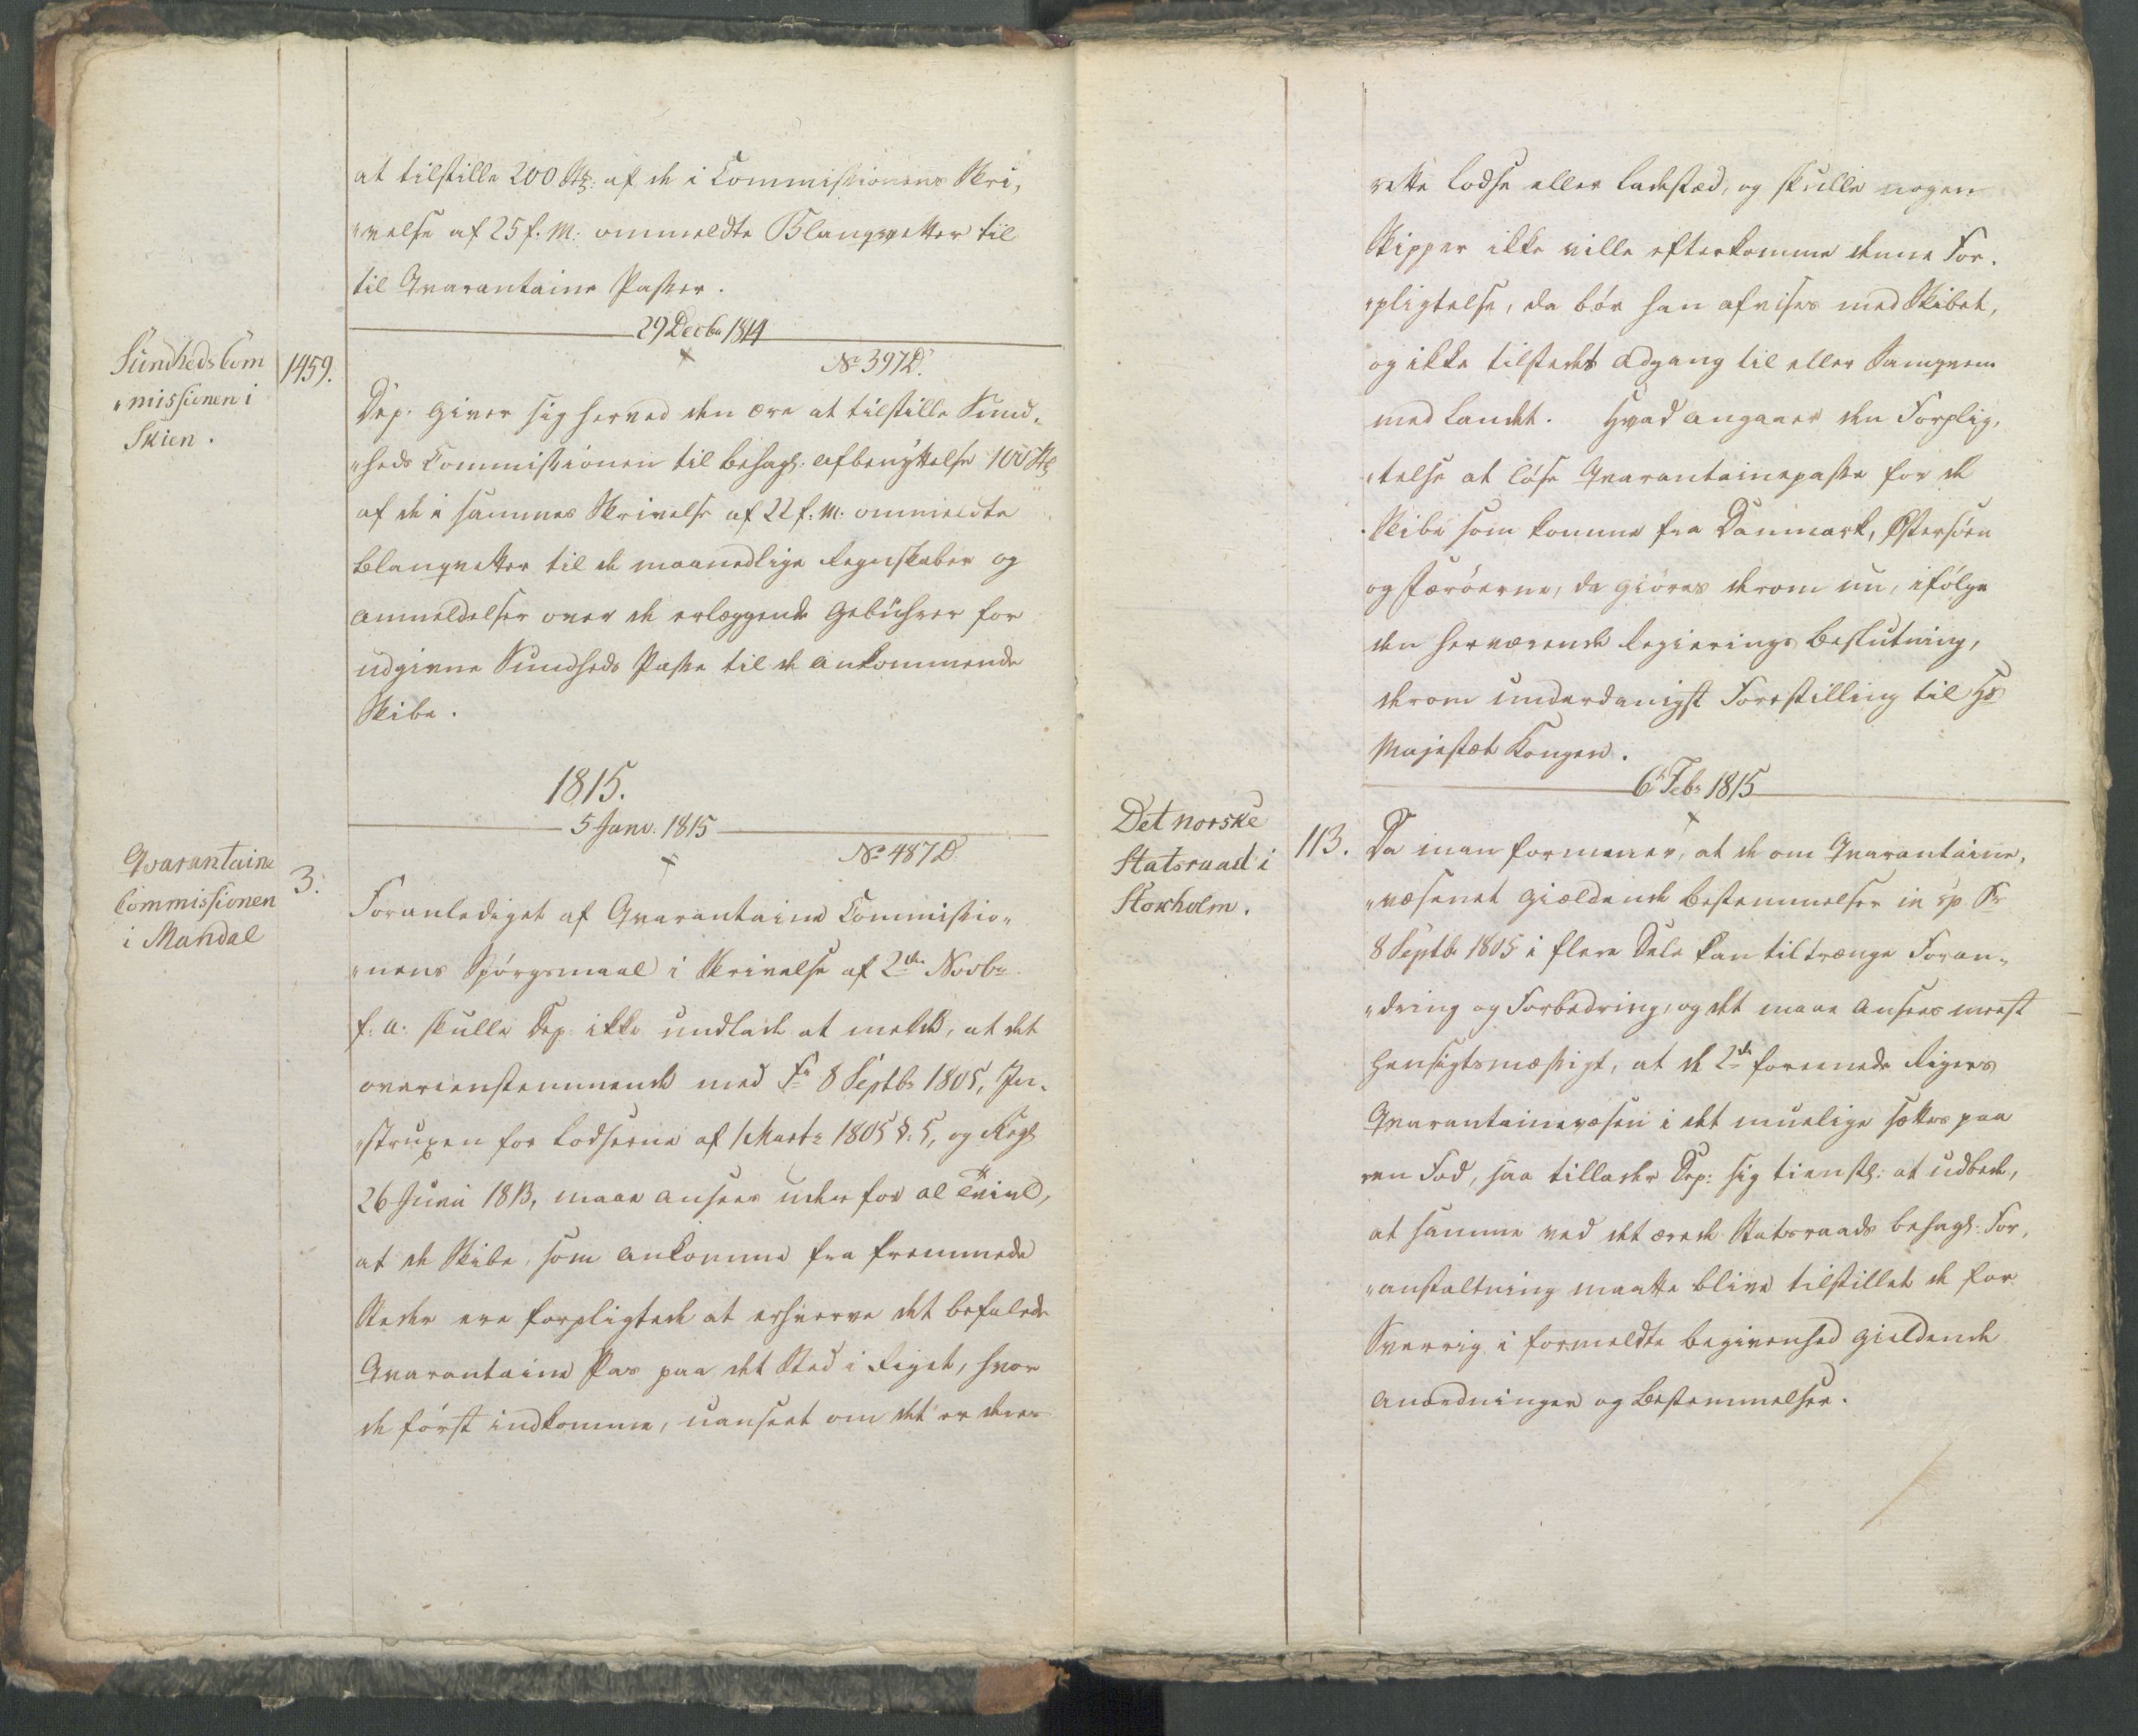 at tilstille 200 Stk: af de i Commissionens Skri,
"velse af 25 f: M: ommeldte Blanqvetter til
til Qvarantaine Passer.
29 Decbr 1814
Sundheds Com
"missionen i
Skien.
1459.
No 397 D.
Dep: giver sig herved den ære at tilstille Sund„
"heds Commissionen til behagl: Afbenyttelse 100 Stk
af de i sammes Skrivelse af 22 f: M: ommeldte
Blanqvetter til de maanedlige Regnskaber og
Anmeldelser over de erlæggende Gebührer for
udgivne Sundheds Passe til de ankommende
Skibe.
1815.
5 Janv. 1815
Qvarantaine
Commissionen
i Mandal
3.
No 487 D.
Foranlediget af Qvarantaine Commissio„
"nens Spörgsmaal i Skrivelse af 2den Novbr
f: A: skulle Dep: ikke undlade at melde, at det
overeenstemmende med Fr 8 Septbr 1805, In„
"struxen for Lodserne af 1 Marts 1805 §: 5, og Regl
26 Juni 1813, maae ansees uden for al Tvivl,
at de Skibe, som ankomme fra fremmede
Steder ere forpligtede at erhverve det befalede
Qvarantaine Pas paa det Sted i Riget, hvor
de först indkomme, uanseet om det er deres
rette Losse eller Ladested, og skulle nogen
Skipper ikke ville efterkomme denne For„
"pligtelse, da bör han afvises med Skibet,
og ikke tilstedes Adgang til eller Samqvem
med Landet. Hvad angaaer den Forplig„
"telse at löse Qvarantainepasse for de
Skibe som komme fra Danmark, Östersöen
og Færöerne, da giöres derom nu, ifölge
den herværende Regierings Beslutning,
derom underdanigst Forestilling til Hs
Majestæt Kongen.
6 Febr 1815
Det norske
Statsraad i
Stokholm.
113.
Da man formener, at de om Qvarantaine„
"væsenet gieldende Bestemmelser in sp. Fr
8 Septbr 1805 i flere Dele kan tiltrænge Foran„
"dring og Forbedring, og det maae ansees meest
hensigtsmæssigt, at de 2de forenede Rigers
Qvarantainevæsen i det muelige sættes paa
een Fod, saa tillader Dep: sig tienstl: at udbede,
at samme ved det ærede Statsraads behagl: For„
"anstaltning maatte blive tilstillet de for
Sverrig i formeldte Begivenhed gieldende
Anordninger og Bestemmelser.